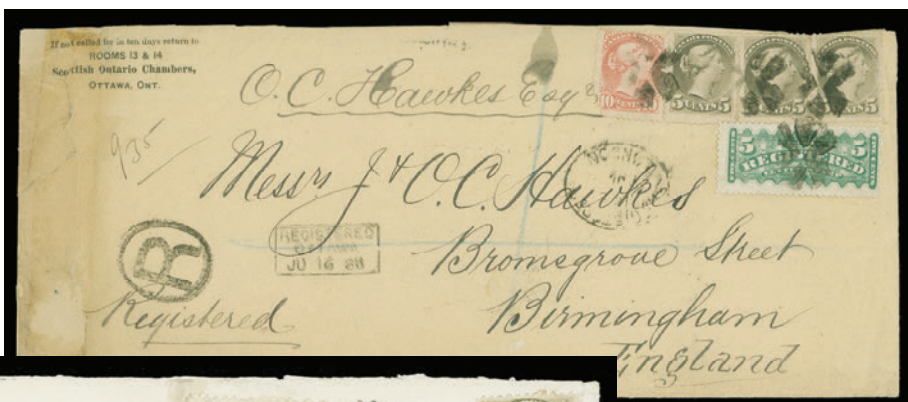 If not called for in ten days return to
ROOMS 13 & 14
Scottish Ontario Chambers,
OTTAWA, ONT.
O. C. Hawkes Esqre
10 CENTS 10
5 CENTS 5
5 CENTS 5
CENTS 5
5 REGISTERED 5
935
Messrs J & O. C. Hawkes
REGISTERED
OTTAWA
JU 16 88
R
Bromsgrove Street
Registered
Birmingham
England